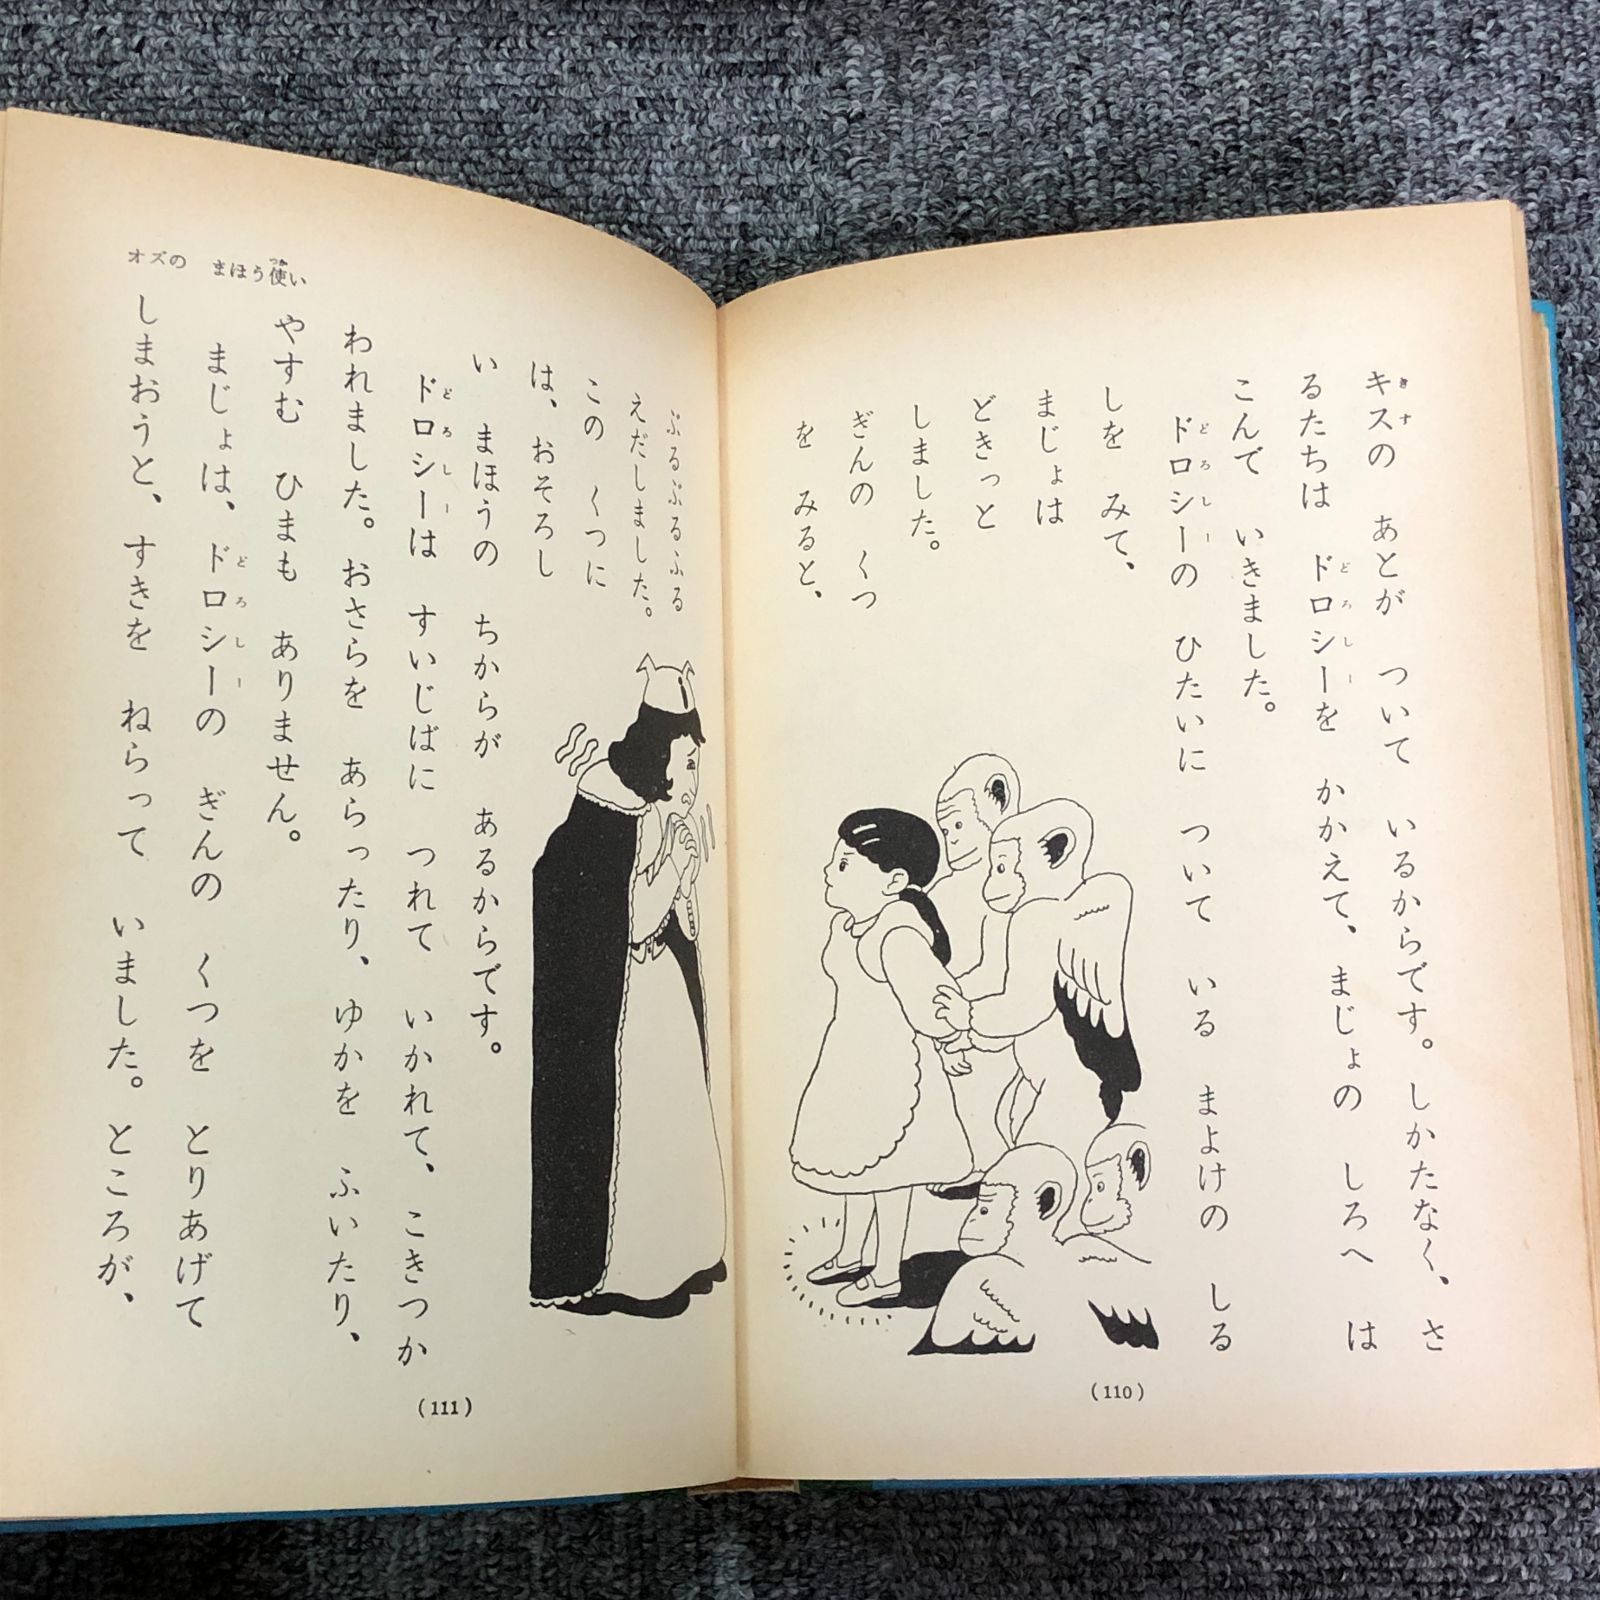 キスの あとが ついて いるからです。しかたなく、さ
るたちは ドロシーを かかえて、まじょの しろへ は
こんで いきました。
ドロシーの ひたいに ついて いる まよけの しる
しを みて、
まじょは
どきっと
しました。
ぎんの くつ
を みると、
(110)
オズの まほう使い
ぶるぶるふる
えだしました。
この くつに
は、おそろし
い まほうの ちからが あるからです。
ドロシーは すいじばに つれて いかれて、こきつか
われました。おさらを あらったり、ゆかを ふいたり、
やすむ ひまも ありません。
まじょは、ドロシーの ぎんの くつを とりあげて
しまおうと、すきを ねらって いました。ところが、
(111)